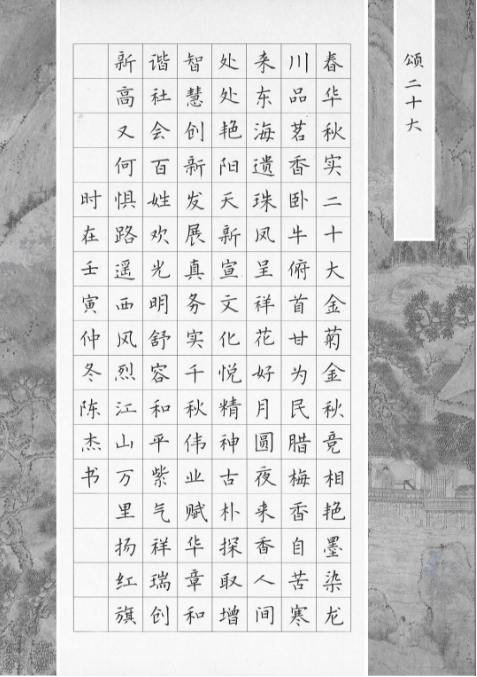 颂二十大
春华秋实二十大金菊金秋竞相艳墨染龙
川品茗香卧牛俯首甘为民腊梅香自苦寒
来东海遗珠凤呈祥花好月圆夜来香人间
处处艳阳天新宣文化悦精神古朴探取增
智慧创新发展真务实千秋伟业赋华章和
谐社会百姓欢光明舒容和平紫气祥瑞创
新高又何惧路遥西风烈江山万里扬红旗
时在壬寅仲冬陈杰书